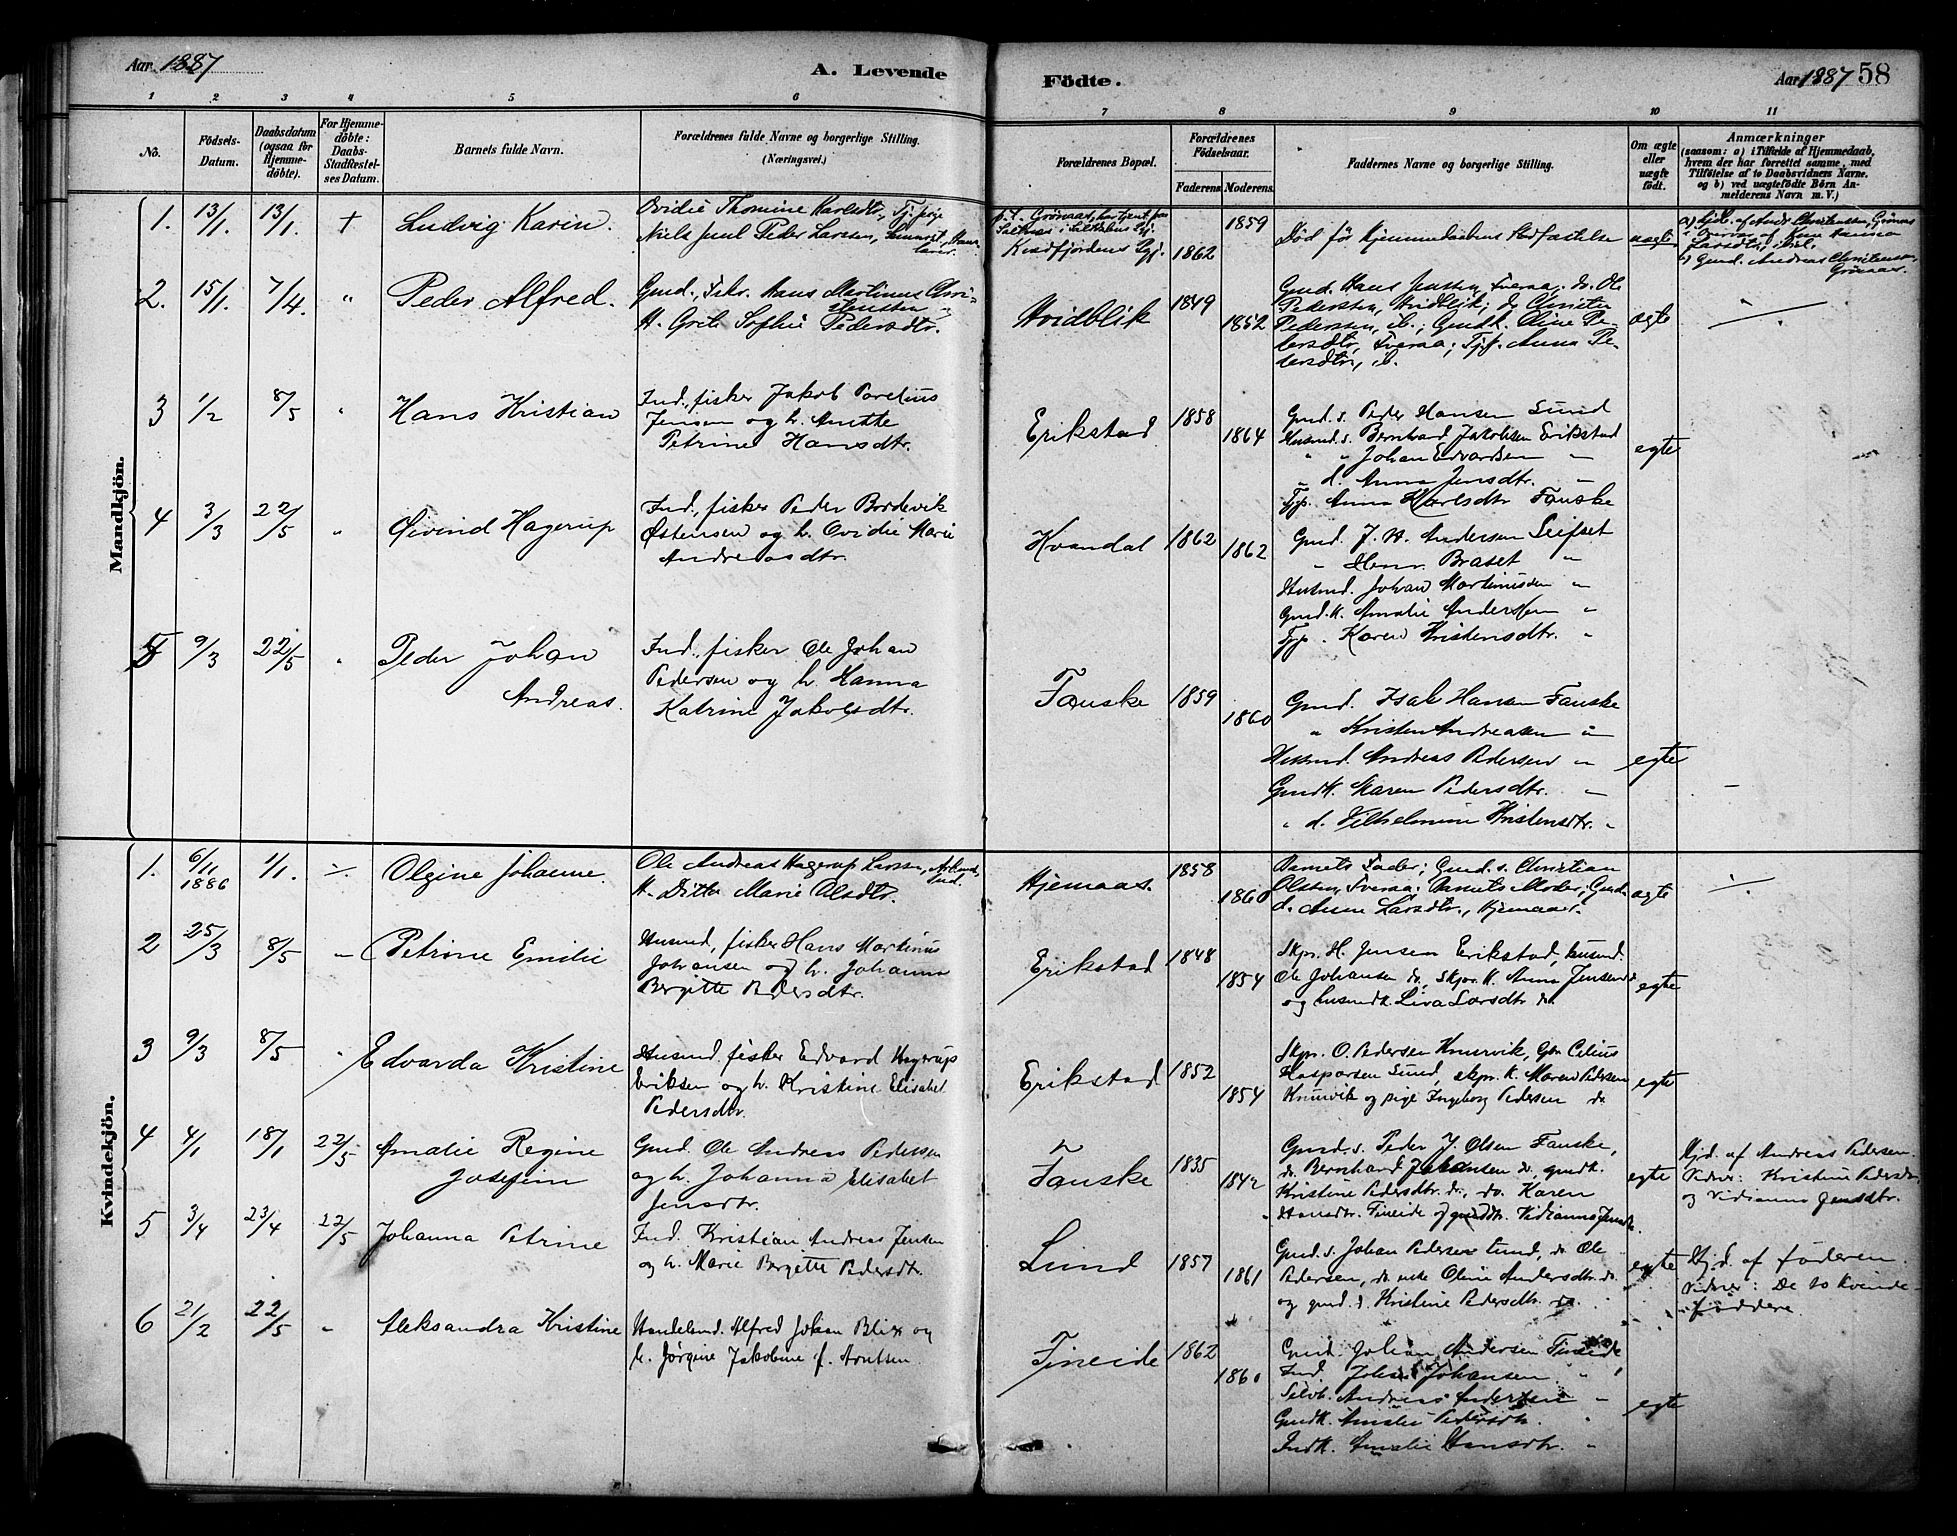 Aar 1887
A. Levende
Födte.
Aar 1887 58
1 2 3 4 5 6 7 8 9 10 11
No.
Födsels-Datum.
Daabsdatum (ogsaa for Hjemme-döbte).
For Hjemme-döbte: Daabs-Stadfæstel-ses Datum.
Barnets fulde Navn.
Forældrenes fulde Navne og borgerlige Stilling.
(Næringsvei.)
Forældrenes Bopæl.
Forældrenes Födselsaar.
Faderens Moderens
Faddernes Navne og borgerlige Stilling.
Om ægte eller uægte födt.
Anmærkninger
(saasom: a) i Tilfælde af Hjemmedaab,
hvem der har forrettet samme, med
Tilföielse af to Daabsvidners Navne.
og b) ved uægtefödte Börn An-
melderens Navn m. V.)
Mandkjön.
1. 13/1. 13/1. + Ludvig Karin.
Ovidie Thomine Karlsdtr., Tj. pige
Niels Juul Peder Larsen,
Kvæfjordens Pgj.
1862 1859
Död før Hjemmedaabens Stadfæstelse
uægte
a) Hjd. af Ands. Christensen, Grönaas
Larsdtr., ibid.
b) Gmd. Andreas Christensen,
Grönaas.
2. 15/1. 7/4. " Peder Alfred.
Gmd., Fisker Hans Martinus Chri-
stensen
H. Grete Sofhie Pedersdtr.
Hvidblik 1849 1852
Gmd. Hans Jensen, Tveraa; do. Ole
Pedersen, Hvidblik; do Christen
Pedersen, ib.; Gmdk. Oline Pe-
dersdtr, Tveraa; Tjp. Anna Pe-
dersdtr, ib.
ægte
3 1/2 8/5 " Hans Kristian
Ind., fisker Jakob Parelius
Jensen og h. Anette
Petrine Hansdtr.
Erikstad 1858 1864
Gmd s. Peder Hansen Lund
Husmd s. Bernhard Jakobsen Erikstad
" " Johan Edvardsen "
" d. Anna Jensdtr. "
Tjp. Anna Karlsdtr Fauske
egte
4 3/3 22/5 " Øivind Hagerup
Ind., fisker Peder Bredevik
Østensen og h. Ovidie Marie
Andreasdtr.
Kvandal 1862 1862
Gmd. J. H. Andersen Leifset
" Henr. Braset "
Husmd. Johan Martinussen "
Gmd. k. Amalie Andersen "
Tjp. Karen Kristensdtr. "
5 9/3 22/5 " Peder Johan
Andreas.
Ind., fisker Ole Johan
Pedersen og h. Hanna
Katrine Jakobsdtr.
Fauske 1859 1860
Gmd. Isak Hansen Fauske
" Kristen Andreasen "
Husmd. Andreas Pedersen "
Gmdk. Maren Pedersdtr. "
" d. Vilhelmine Kristensdtr. "
egte
Kvindekjön.
1. 6/11 1886 1/1. ÷ Olgine Johanne.
Ole Andreas Hagerup Larsen,
H. Ditte Marie Olsdtr.
Hjemaas. 1858 1860
Barnets Fader; Gmd. s. Christian
Olsen, Tveraa; Barnets Moder; Gmd.
d. Anne Larsdtr., Hjemaas.
ægte
2 25/3 8/5 " Petrine Emilie
Husmd, fisker Hans Martinus
Johansen og h. Johanna
Bergitte Pedersdtr.
Erikstad 1848 1854
Skpr. H. Jensen Erikstad, husmd.
Ole Johansen do, skpr. k. Anna Jensen do
og husmdk. Liva Larsdtr do
egte
3 9/3 8/5 " Edvarda Kristine
Husmd. fisker Edvard Hagerup
Eriksen og h. Kristine Elisabet
Pedersdtr.
Erikstad 1852 1854
Skpr. O. Pedersen Kmsrvik, Gbr Celius
Kaspersen Lund, skpr. k. Maren Pedersen
og pige Ingeborg Pedersen do
egte
4 4/1 18/1 22/5 Amalie Regine
Josefine
Gmd. Ole Andreas Pedersen
og h. Johanna Elisabet
Jensdtr.
Fauske 1835 1842
Gmd. s. Peder J. Olsen Fauske,
do. Bernhard Johansen do. gmdk.
Kristine Pedersdtr. do., do. Karen
Hansdtr. Fineide og gmddtr. Vidianna Jensdtr.
egte
Hjd. af Andreas Pedersen.
Vidner: Kristine Pedersdtr
og Vidianna Jensdtr.
5 3/4 23/4 22/5 Johanna Petrine
Ind. Kristian Andreas Jensen
og h. Marie Bergitte Pedersdtr.
Lund 1857 1861
Gmd. s. Johan Pedersen Lund, do. Ole
Pedersen, do. enke Oline Andersdtr. do
og gmd. d. Kristine Pedersdtr. do.
egte
Hjd. af faderen.
Vidner: De to kvinde-
faddere.
6 21/2 22/5 " Aleksandra Kristine
Handelsmd. Alfred Johan Blix og
h. Jørgine Jakobine f. Arntsen
Fineide 1862 1860
Gmd. Johan Andersen Fineide
Ind. Johan Johansen "
Selvh. Andreas Andersen "
Gmdk. Amalie Pedersdtr. "
Indk. Amalie Hansdtr. "
egte